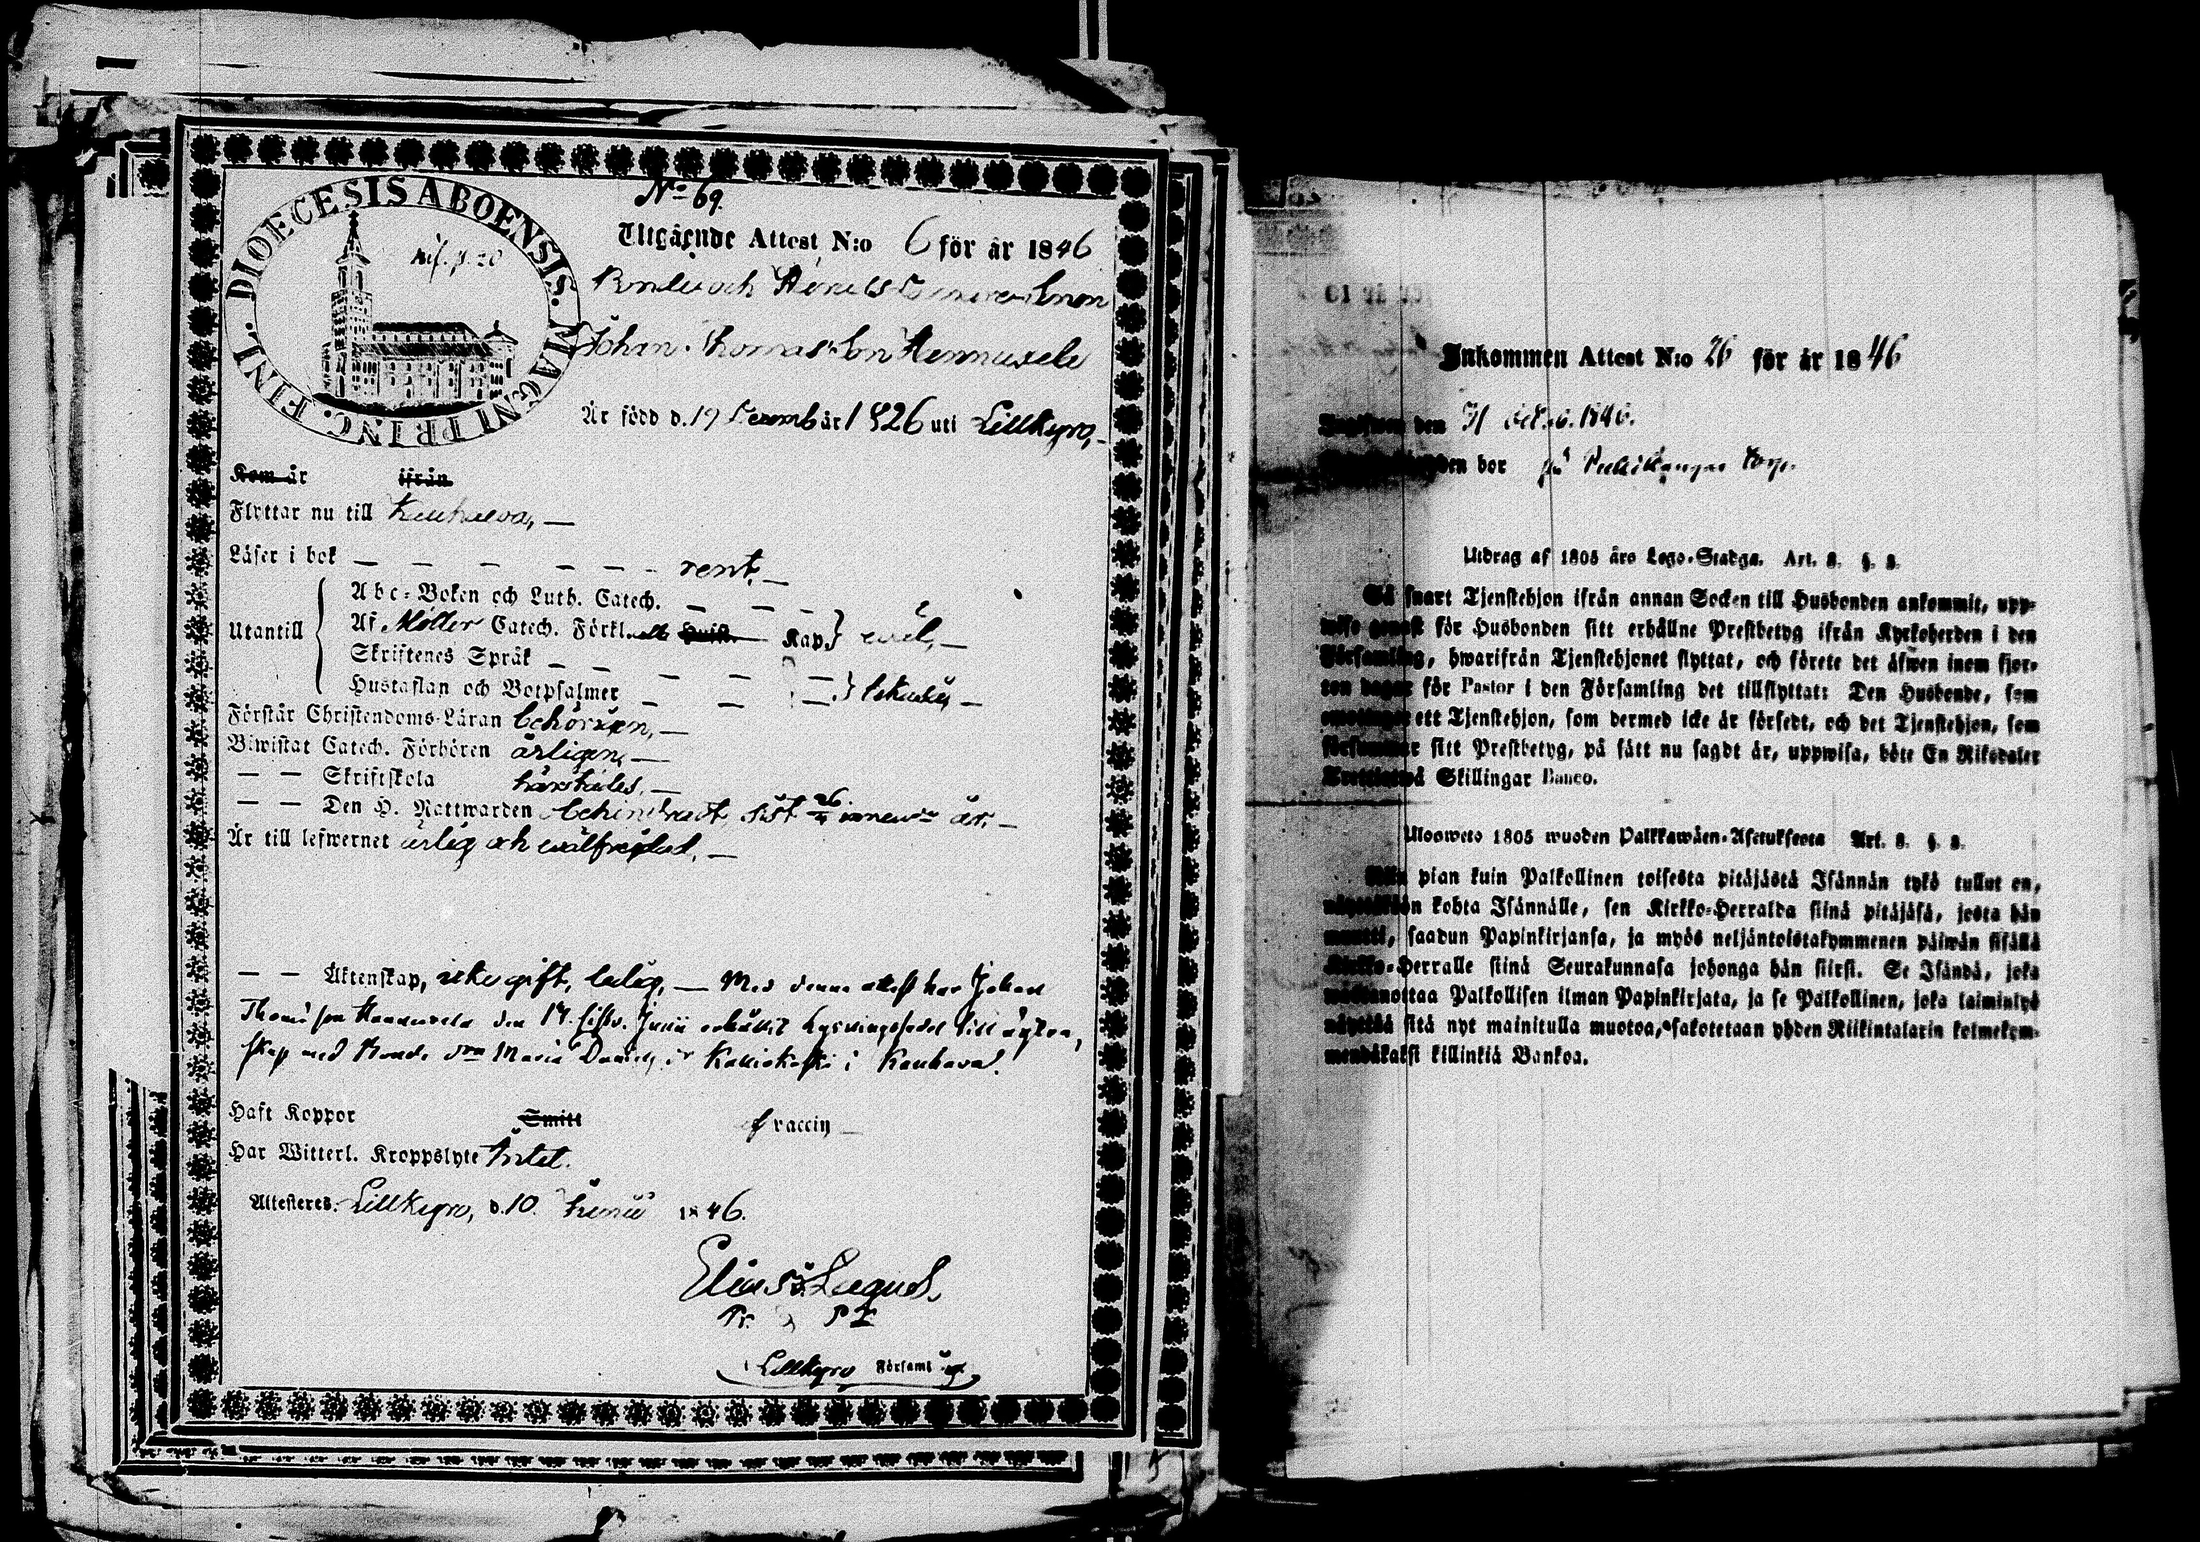 DIOECESIS ABOENSIS. MAGNI PRINC. FINL.
N:o 69.
Utgående Attest N:o 6 för år 1846
Johan Thomas Son Hannuxela
Är född d. 19 Decemb år 1826 uti Lillkyro,
Kom år ifrån
Flyttar nu till Kauhava, —
Läser i bok — — — — — — rent, —
Utantill
Abc-Boken och Luth. Catech. — — —
Af Möller Catech. Förkl. Kap. wäl, —
Skriftenes Språk — — — — —
Hustaflan och Botpsalmer — — —
Förstår Christendoms-Läran behörigen, —
Biwistat Catech. Förhören årligen, —
— — Skriftskola härstädes, —
— — Den H. Nattwarden obehindradt, sist 26 innew. år. —
Är till lefwernet ärlig och wälfrejdad, —
— — Äktenskap, icke gift, ledig, — Med denna attest har Johan
Thomæson Hannuxela den 14 sistl. Junii erhållit Lysningssedel till äkten-
skap med Bonde Maria i Kauhava.
Haft Koppor Smitt vaccin —
Har Witterl. Kroppslyte Intet.
Attesteras. Lillkyro, d. 10. Junii 1846.
Lillkyro Församl
Inkommen Attest N:o 26 för år 1846
den 31 1846.
den bor på
Utdrag af 1805 års Lego-Stadga. Art. 8. §. 2.
Så snart Tjenstehjon ifrån annan Socken till Husbonden ankommit, upp-
wise genast för Husbonden sitt erhållne Prestbetyg ifrån Kyrkoherden i den
Församling, hwarifrån Tjenstehjonet flyttat, och förete det äfwen inom fjor-
ton dagar för Pastor i den Församling det tillflyttat: Den Husbonde, som
emottager ett Tjenstehjon, som dermed icke är försedt, och det Tjenstehjon, som
försummar sitt Prestbetyg, på sätt nu sagdt är, uppwisa, böte En Riksdaler
Trettiotwå Skillingar Banco.
Ulosweto 1805 wuoden Palkkawäen-Asetuksesta Art. 8. §. 2.
Niin pian kuin Palkollinen toisesta pitäjästä Isännän tykö tullut on,
näyttäköön kohta Isännälle, sen Kirkko-Herralda siinä pitäjäsä, josta hän
muutti, saadun Papinkirjansa, ja myös neljäntoistakymmenen päiwän sisällä
Kirkko-Herralle siinä Seurakunnasa johonga hän siirsi. Se Isändä, joka
wastanottaa Palkollisen ilman Papinkirjata, ja se Palkollinen, joka laiminlyö
näyttää sitä nyt mainitulla muotoa, sakotetaan yhden Riikintalarin kolmekym-
mendäkaksi killinkiä Bankoa.